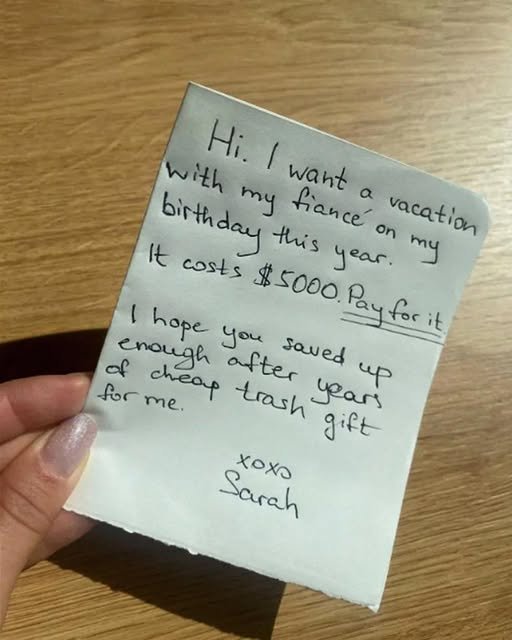 Hi. I want a vacation
with my fiancé on my
birthday this year.
It costs $5000. Pay for it.
I hope you saved up
enough after years
of cheap trash gift
for me.
xoxo
Sarah